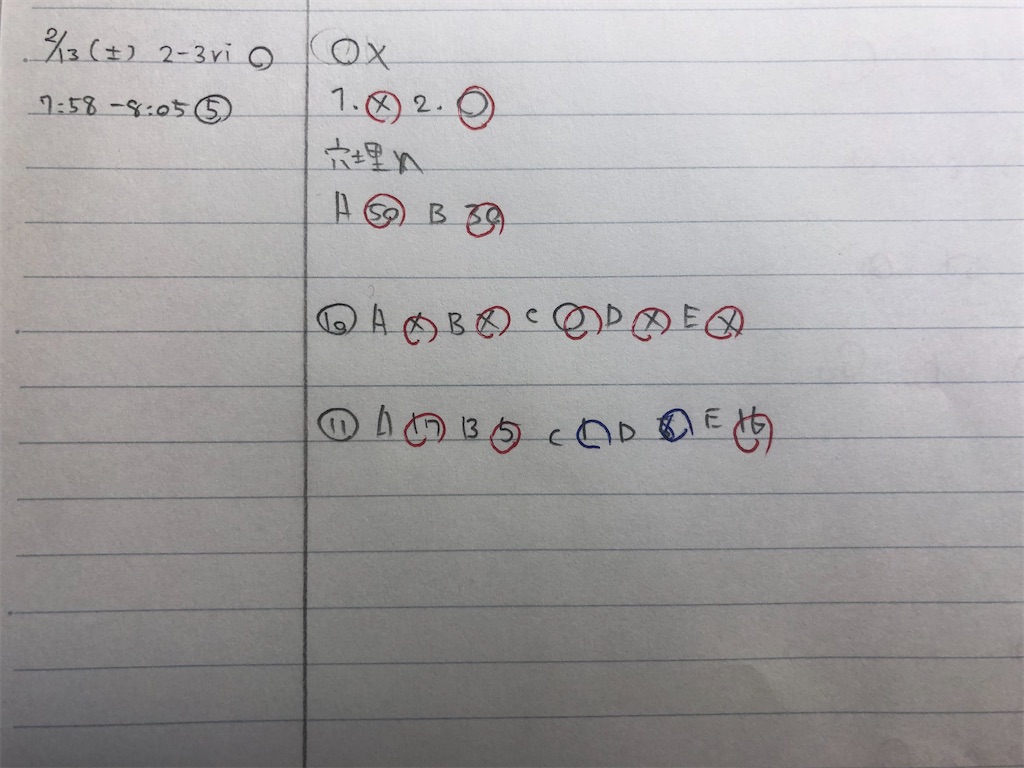 2/13(土) 2-3vi ○
7:58-8:05 ⑤
○×
1. × 2. ○
穴埋め
A 50 B 30
⑩ A × B × C ○ D × E ×
⑪ A 17 B 5 C 1 D 8 E 16